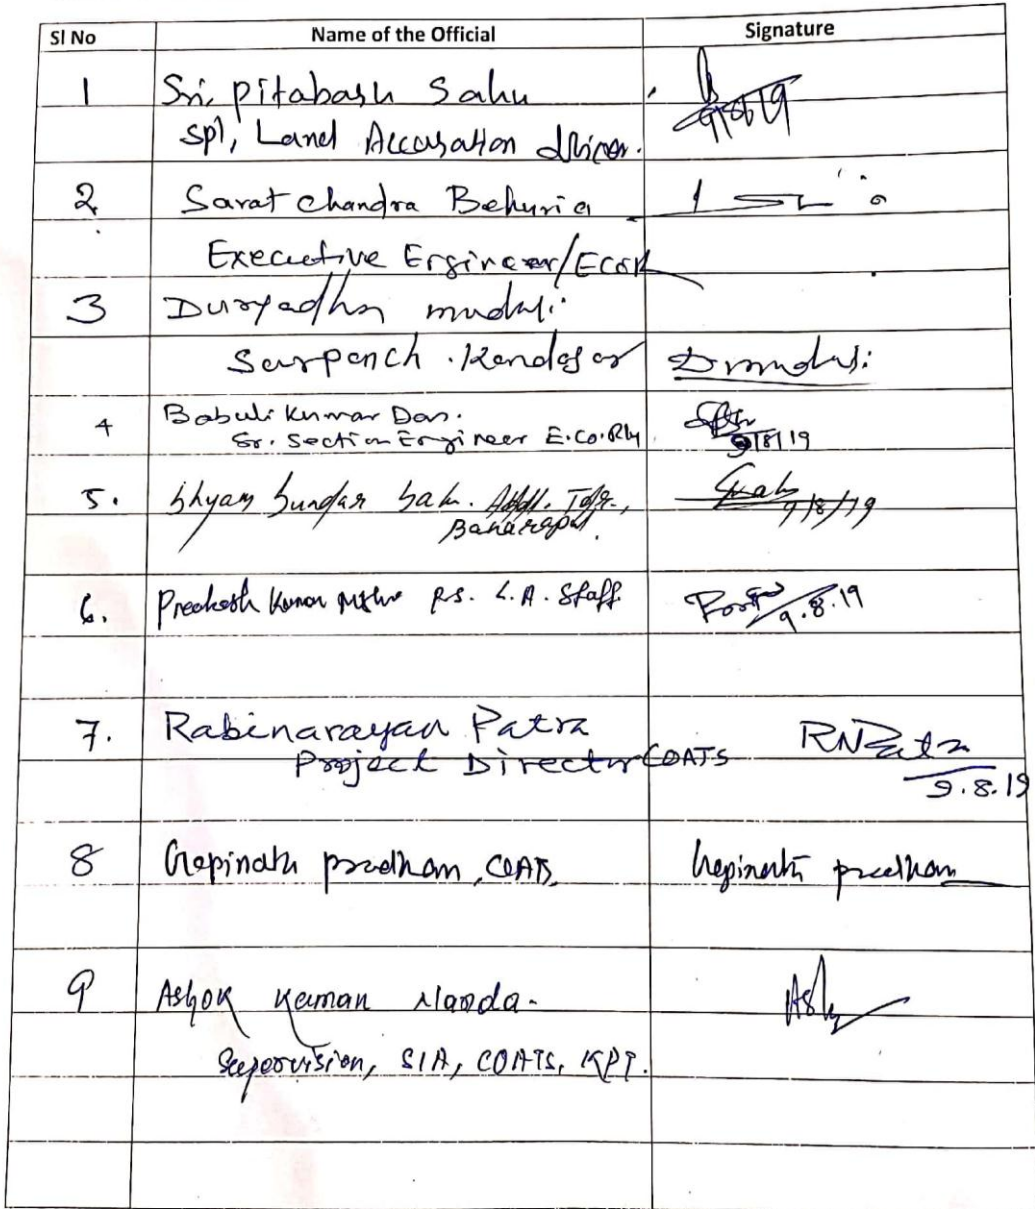 Sl No Name of the Official Signature
1 Sri, Pitabash Sahu
Spl, Land Accusation 9/8/19
2 Sarat Chandra Behuria
Executive Engineer/ECoR
3 Duryadhan muduli
Sarpanch . D muduli
4 Babuli Kumar Das.
Sr. Section Engineer E.Co.Rly 9/8/19
5. Shyam Sundar Sahu. Addl. Tdr., 9/8/19
Banarapal.
6. Prakash Kumar R.S. L.A. Staff 9.8.19
7. Rabinarayan Patra RNPatra
Project Director COATS 9.8.19
8 Gopinath pradhan, COATS, Gopinath pradhan
9 Ashok Kumar Nanda-
Supervision, SIA, COATS, KPT.